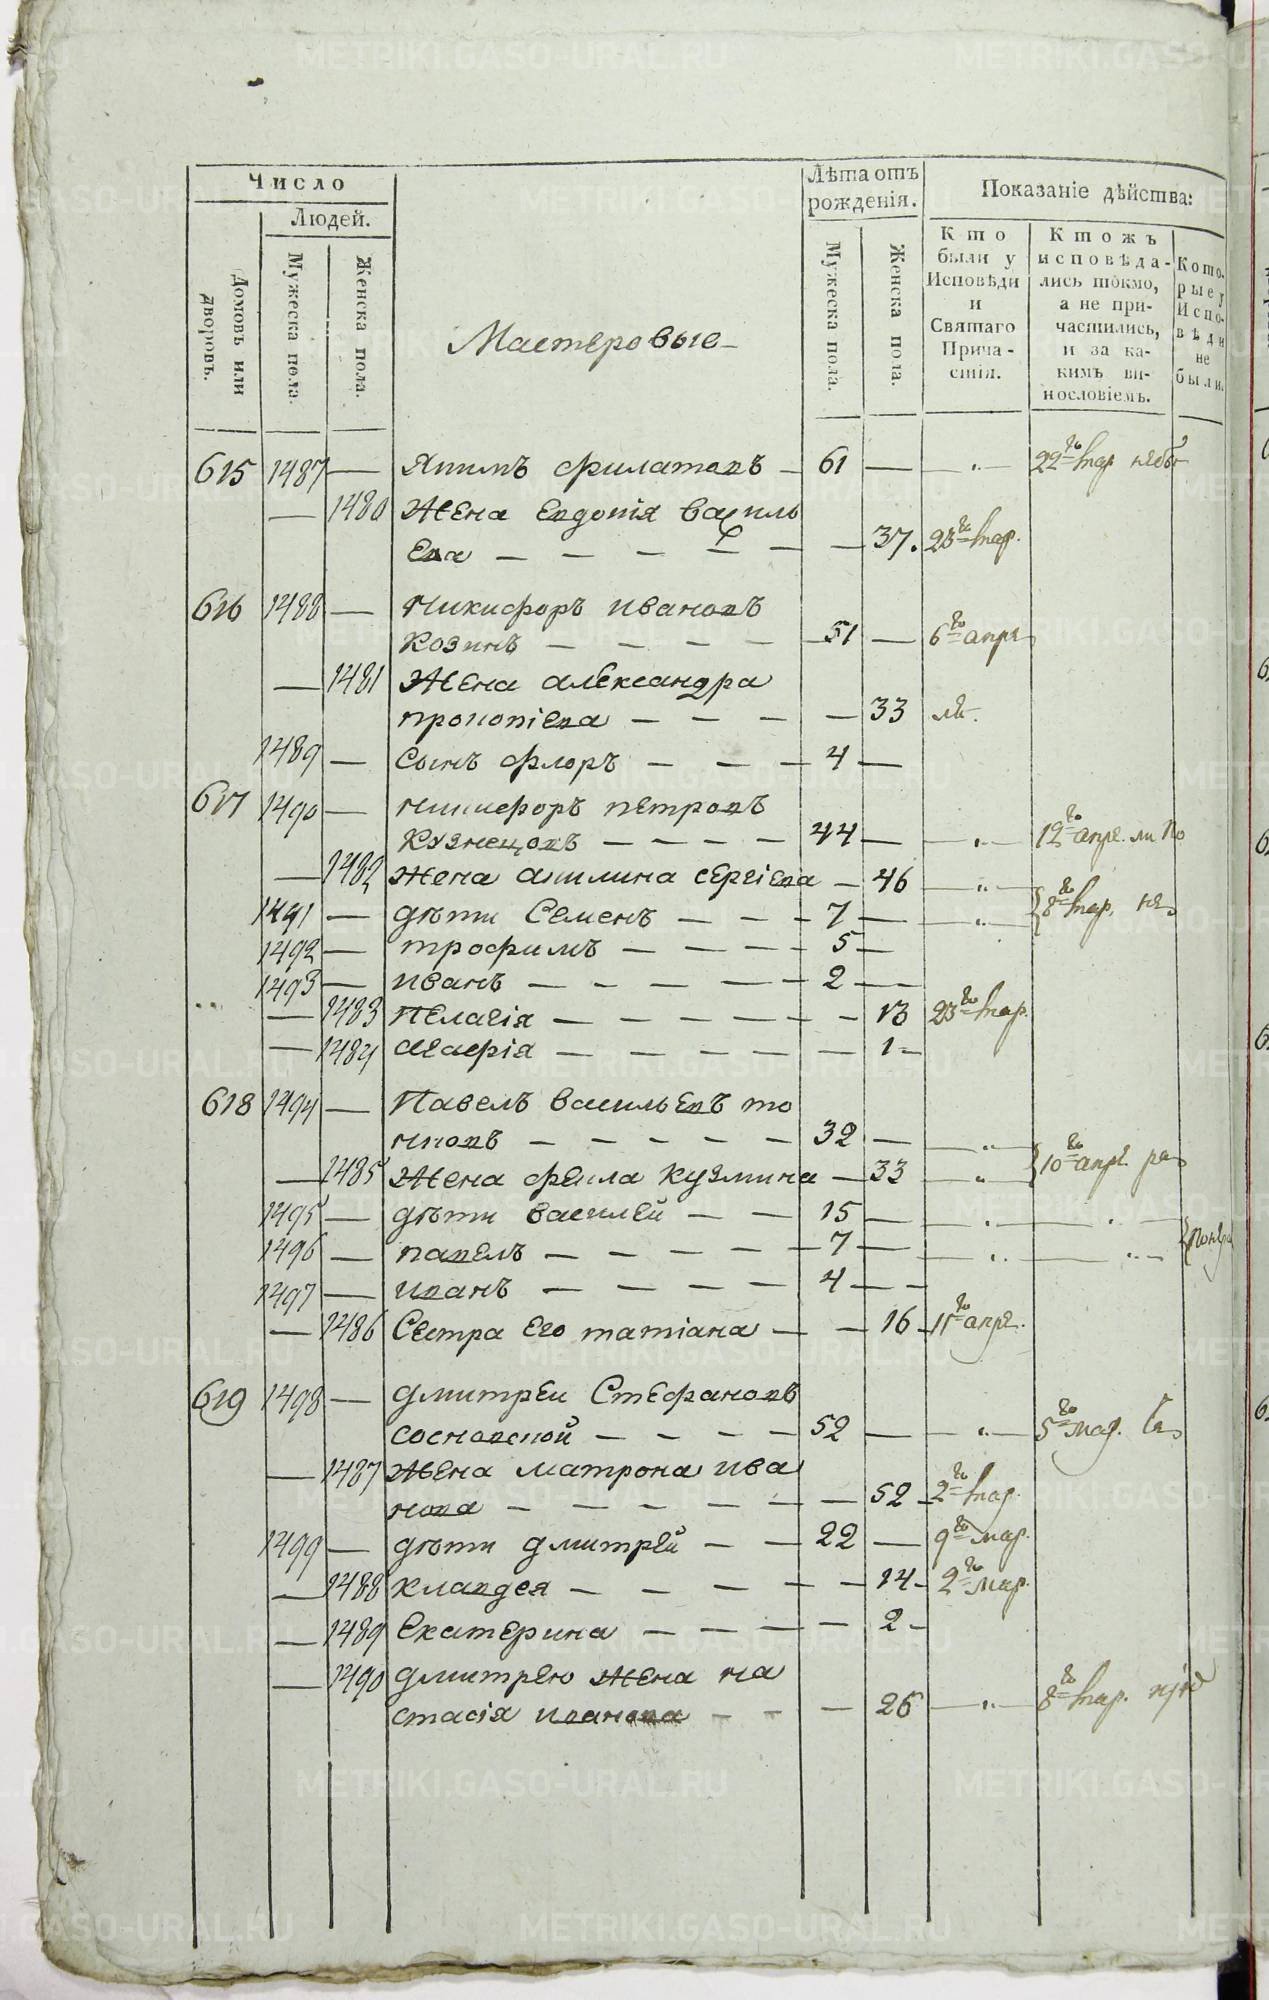 Число
Людей.
Домовъ или дворовъ.
Мужеска пола.
Женска пола.
Мастеровые
Лѣта отъ рожденія.
Мужеска пола.
Женска пола.
Показаніе дѣйства:
Кто были у Исповѣди и Святаго Причастія.
Ктожъ исповѣдались токмо, а не причастились, и за какимъ винословіемъ.
Которые у Исповѣди не были.
615 1487 — Якимъ Филатовъ — 61 — — „ — 22го мар.
— 1480 Жена Евдокія Василь
ева — — — — — — 37. 23го мар.
616 1488 — Никифоръ Ивановъ
Козинъ — — — — 51 — 6го апре
— 1481 Жена Александра
Прокопіева — — — — 33
1489 — Сынъ Флоръ — — — 4 —
617 1490 — Никифоръ Петровъ
Кузнецовъ — — — — 44 — — „ — 12го апре.
— 1482 Жена Акилина Сергіева — 46 — „ —
1491 — Дѣти Семенъ — — — 7 — — „ — 8го мар.
1492 — Трофимъ — — — — 5 —
1493 — Иванъ — — — — — 2 — —
— 1483 Пелагія — — — — — — 13 23го мар.
— 1484 Агафія — — — — — — 1 —
618 1494 — Павелъ Васильевъ То
— — — — — 32 — — „ —
— 1485 Жена Фекла Кузмина — 33 — „ — 10го апре.
1495 — Дѣти Василей — — 15 — — „ — „ —
1496 — Павелъ — — — — — 7 — — „ — — „ —
1497 — Иванъ — — — — 4 — —
— 1486 Сестра его Татіана — — 16 — 11го апре.
619 1498 — Дмитреи Стефановъ
Сосновской — — — — 52 — — „ — 5го мар.
— 1487 Жена Матрона Ива
нова — — — — — — 52 — 2го мар.
1499 — Дѣти Дмитрей — — 22 — 9го мар.
— 1488 Клавдея — — — — — — 14 — 2го мар.
— 1489 Екатерина — — — — — 2 —
— 1490 Дмитрею жена На
стасія Иванова — — — 26 — „ — 8го мар.
METRIKI.GASO-URAL.RU